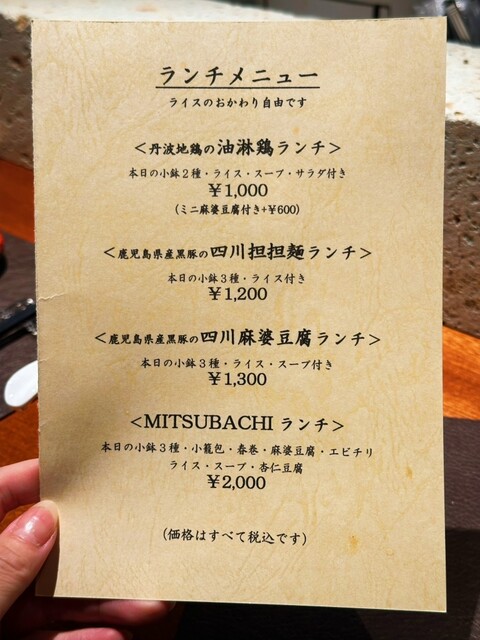 ランチメニュー
ライスのおかわり自由です
＜丹波地鶏の油淋鶏ランチ＞
本日の小鉢２種・ライス・スープ・サラダ付き
￥1,000
（ミニ麻婆豆腐付き+¥600）
＜鹿児島県産黒豚の四川担担麺ランチ＞
本日の小鉢３種・ライス付き
￥1,200
＜鹿児島県産黒豚の四川麻婆豆腐ランチ＞
本日の小鉢３種・ライス・スープ付き
￥1,300
＜MITSUBACHI ランチ＞
本日の小鉢３種・小籠包・春巻・麻婆豆腐・エビチリ
ライス・スープ・杏仁豆腐
￥2,000
（価格はすべて税込です）